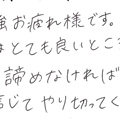 強お疲れ様です。
はとても良いところ
諦めなければ
信じてやり切ってく